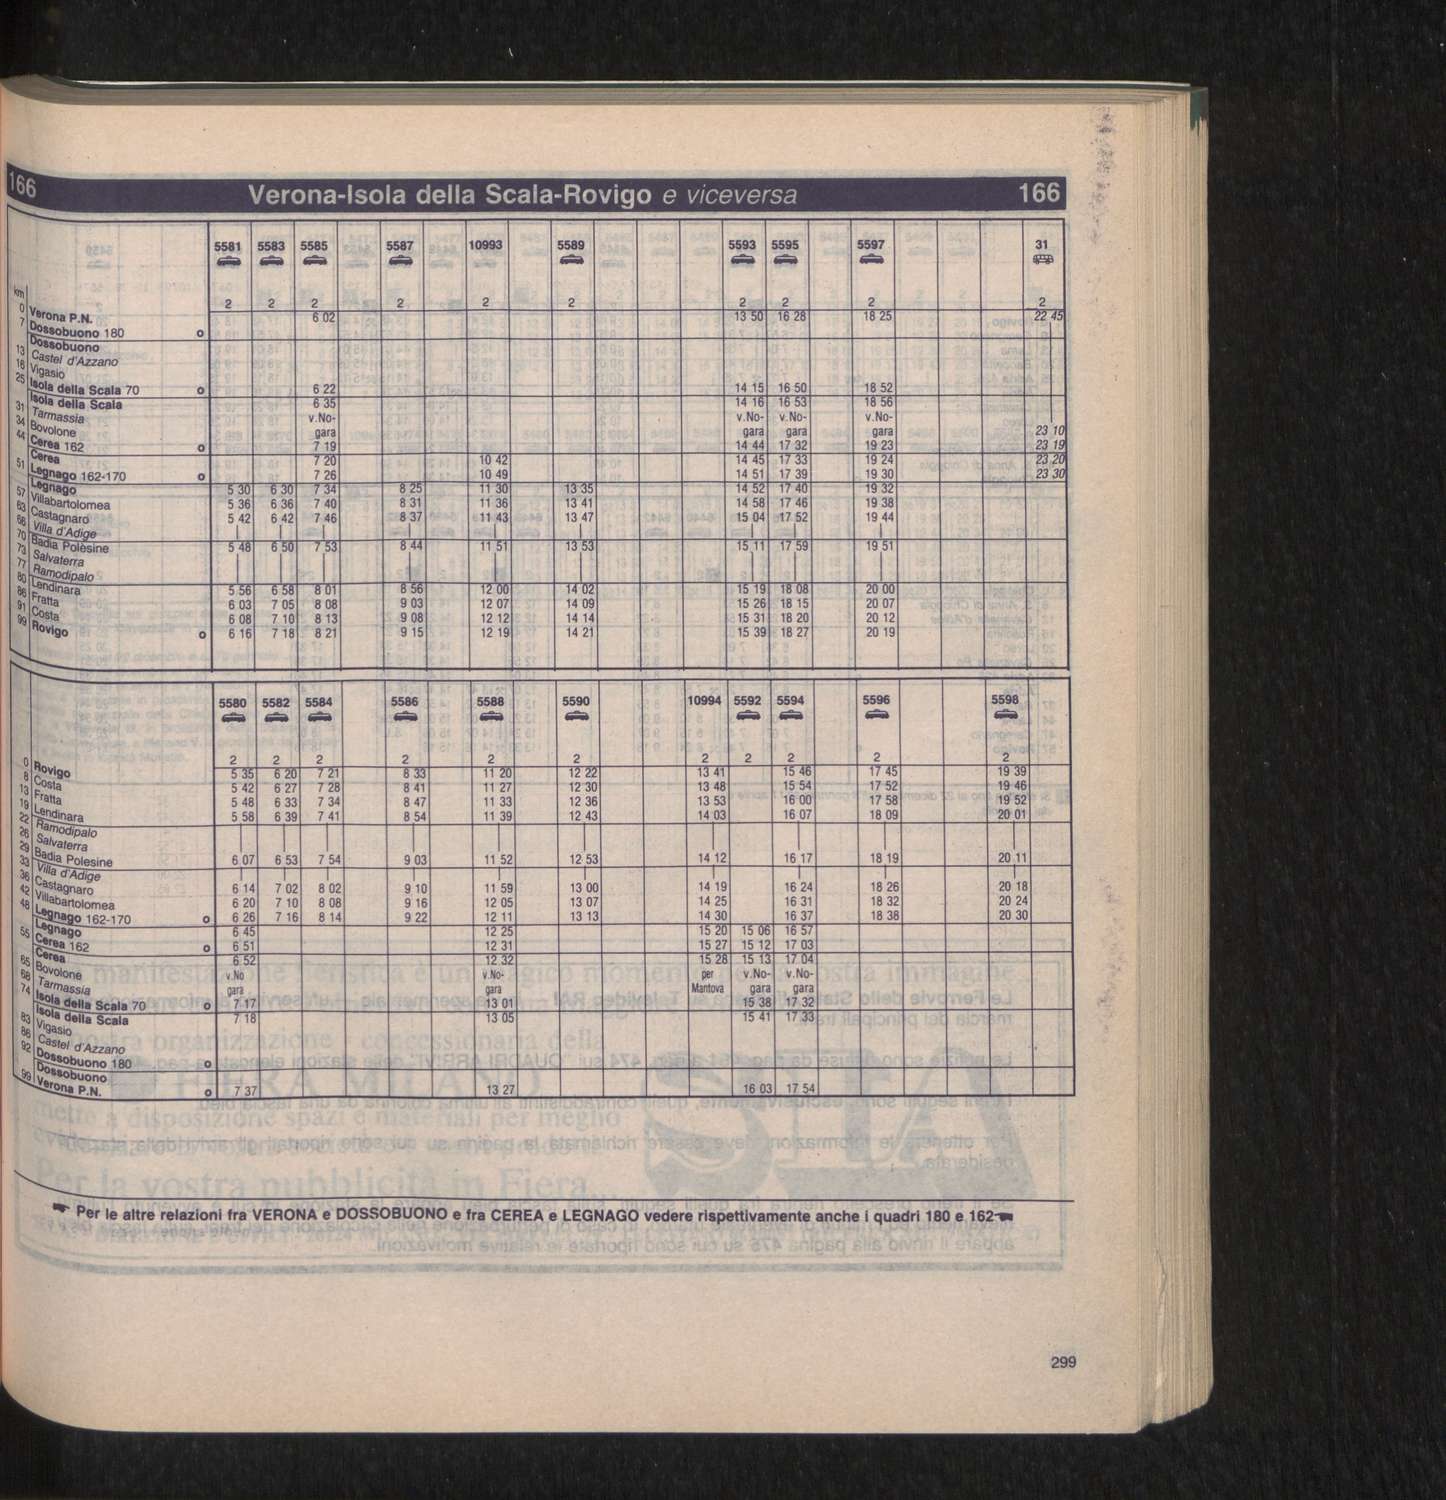 166 Verona-Isola della Scala-Rovigo e viceversa 166
5581 5583 5585 5587 10993 5589 5593 5595 5597 31
km 2 2 2 2 2 2 2 2 2 2
0 Verona P.N. 6 02 13 50 16 28 18 25 22 45
7 Dossobuono 180 o
Dossobuono
13 Castel d'Azzano
16 Vigasio
25 Isola della Scala 70 o 6 22 14 15 16 50 18 52
Isola della Scala 6 35 14 16 16 53 18 56
31 Tarmassia v.No- v.No- v.No- v.No-
34 Bovolone gara gara gara gara 23 10
44 Cerea 162 o 7 19 14 44 17 32 19 23 23 19
Cerea 7 20 10 42 14 45 17 33 19 24 23 20
51 Legnago 162-170 o 7 26 10 49 14 51 17 39 19 30 23 30
Legnago 5 30 6 30 7 34 8 25 11 30 13 35 14 52 17 40 19 32
57 Villabartolomea 5 36 6 36 7 40 8 31 11 36 13 41 14 58 17 46 19 38
63 Castagnaro 5 42 6 42 7 46 8 37 11 43 13 47 15 04 17 52 19 44
66 Villa d'Adige
70 Badia Polesine 5 48 6 50 7 53 8 44 11 51 13 53 15 11 17 59 19 51
73 Salvaterra
77 Ramodipalo
80 Lendinara 5 56 6 58 8 01 8 56 12 00 14 02 15 19 18 08 20 00
86 Fratta 6 03 7 05 8 08 9 03 12 07 14 09 15 26 18 15 20 07
91 Costa 6 08 7 10 8 13 9 08 12 12 14 14 15 31 18 20 20 12
99 Rovigo o 6 16 7 18 8 21 9 15 12 19 14 21 15 39 18 27 20 19
5580 5582 5584 5586 5588 5590 10994 5592 5594 5596 5598
2 2 2 2 2 2 2 2 2 2 2
0 Rovigo 5 35 6 20 7 21 8 33 11 20 12 22 13 41 15 46 17 45 19 39
8 Costa 5 42 6 27 7 28 8 41 11 27 12 30 13 48 15 54 17 52 19 46
13 Fratta 5 48 6 33 7 34 8 47 11 33 12 36 13 53 16 00 17 58 19 52
19 Lendinara 5 58 6 39 7 41 8 54 11 39 12 43 14 03 16 07 18 09 20 01
22 Ramodipalo
26 Salvaterra
29 Badia Polesine 6 07 6 53 7 54 9 03 11 52 12 53 14 12 16 17 18 19 20 11
33 Villa d'Adige
36 Castagnaro 6 14 7 02 8 02 9 10 11 59 13 00 14 19 16 24 18 26 20 18
42 Villabartolomea 6 20 7 10 8 08 9 16 12 05 13 07 14 25 16 31 18 32 20 24
48 Legnago 162-170 o 6 26 7 16 8 14 9 22 12 11 13 13 14 30 16 37 18 38 20 30
Legnago 6 45 12 25 15 20 15 06 16 57
55 Cerea 162 o 6 51 12 31 15 27 15 12 17 03
Cerea 6 52 12 32 15 28 15 13 17 04
65 Bovolone v.No v.No- per v.No- v.No-
68 Tarmassia gara gara Mantova gara gara
74 Isola della Scala 70 o 7 17 13 01 15 38 17 32
Isola della Scala 7 18 13 05 15 41 17 33
83 Vigasio
86 Castel d'Azzano
92 Dossobuono 180 o
Dossobuono
99 Verona P.N. o 7 37 13 27 16 03 17 54
Per le altre relazioni fra VERONA e DOSSOBUONO e fra CEREA e LEGNAGO vedere rispettivamente anche i quadri 180 e 162
299